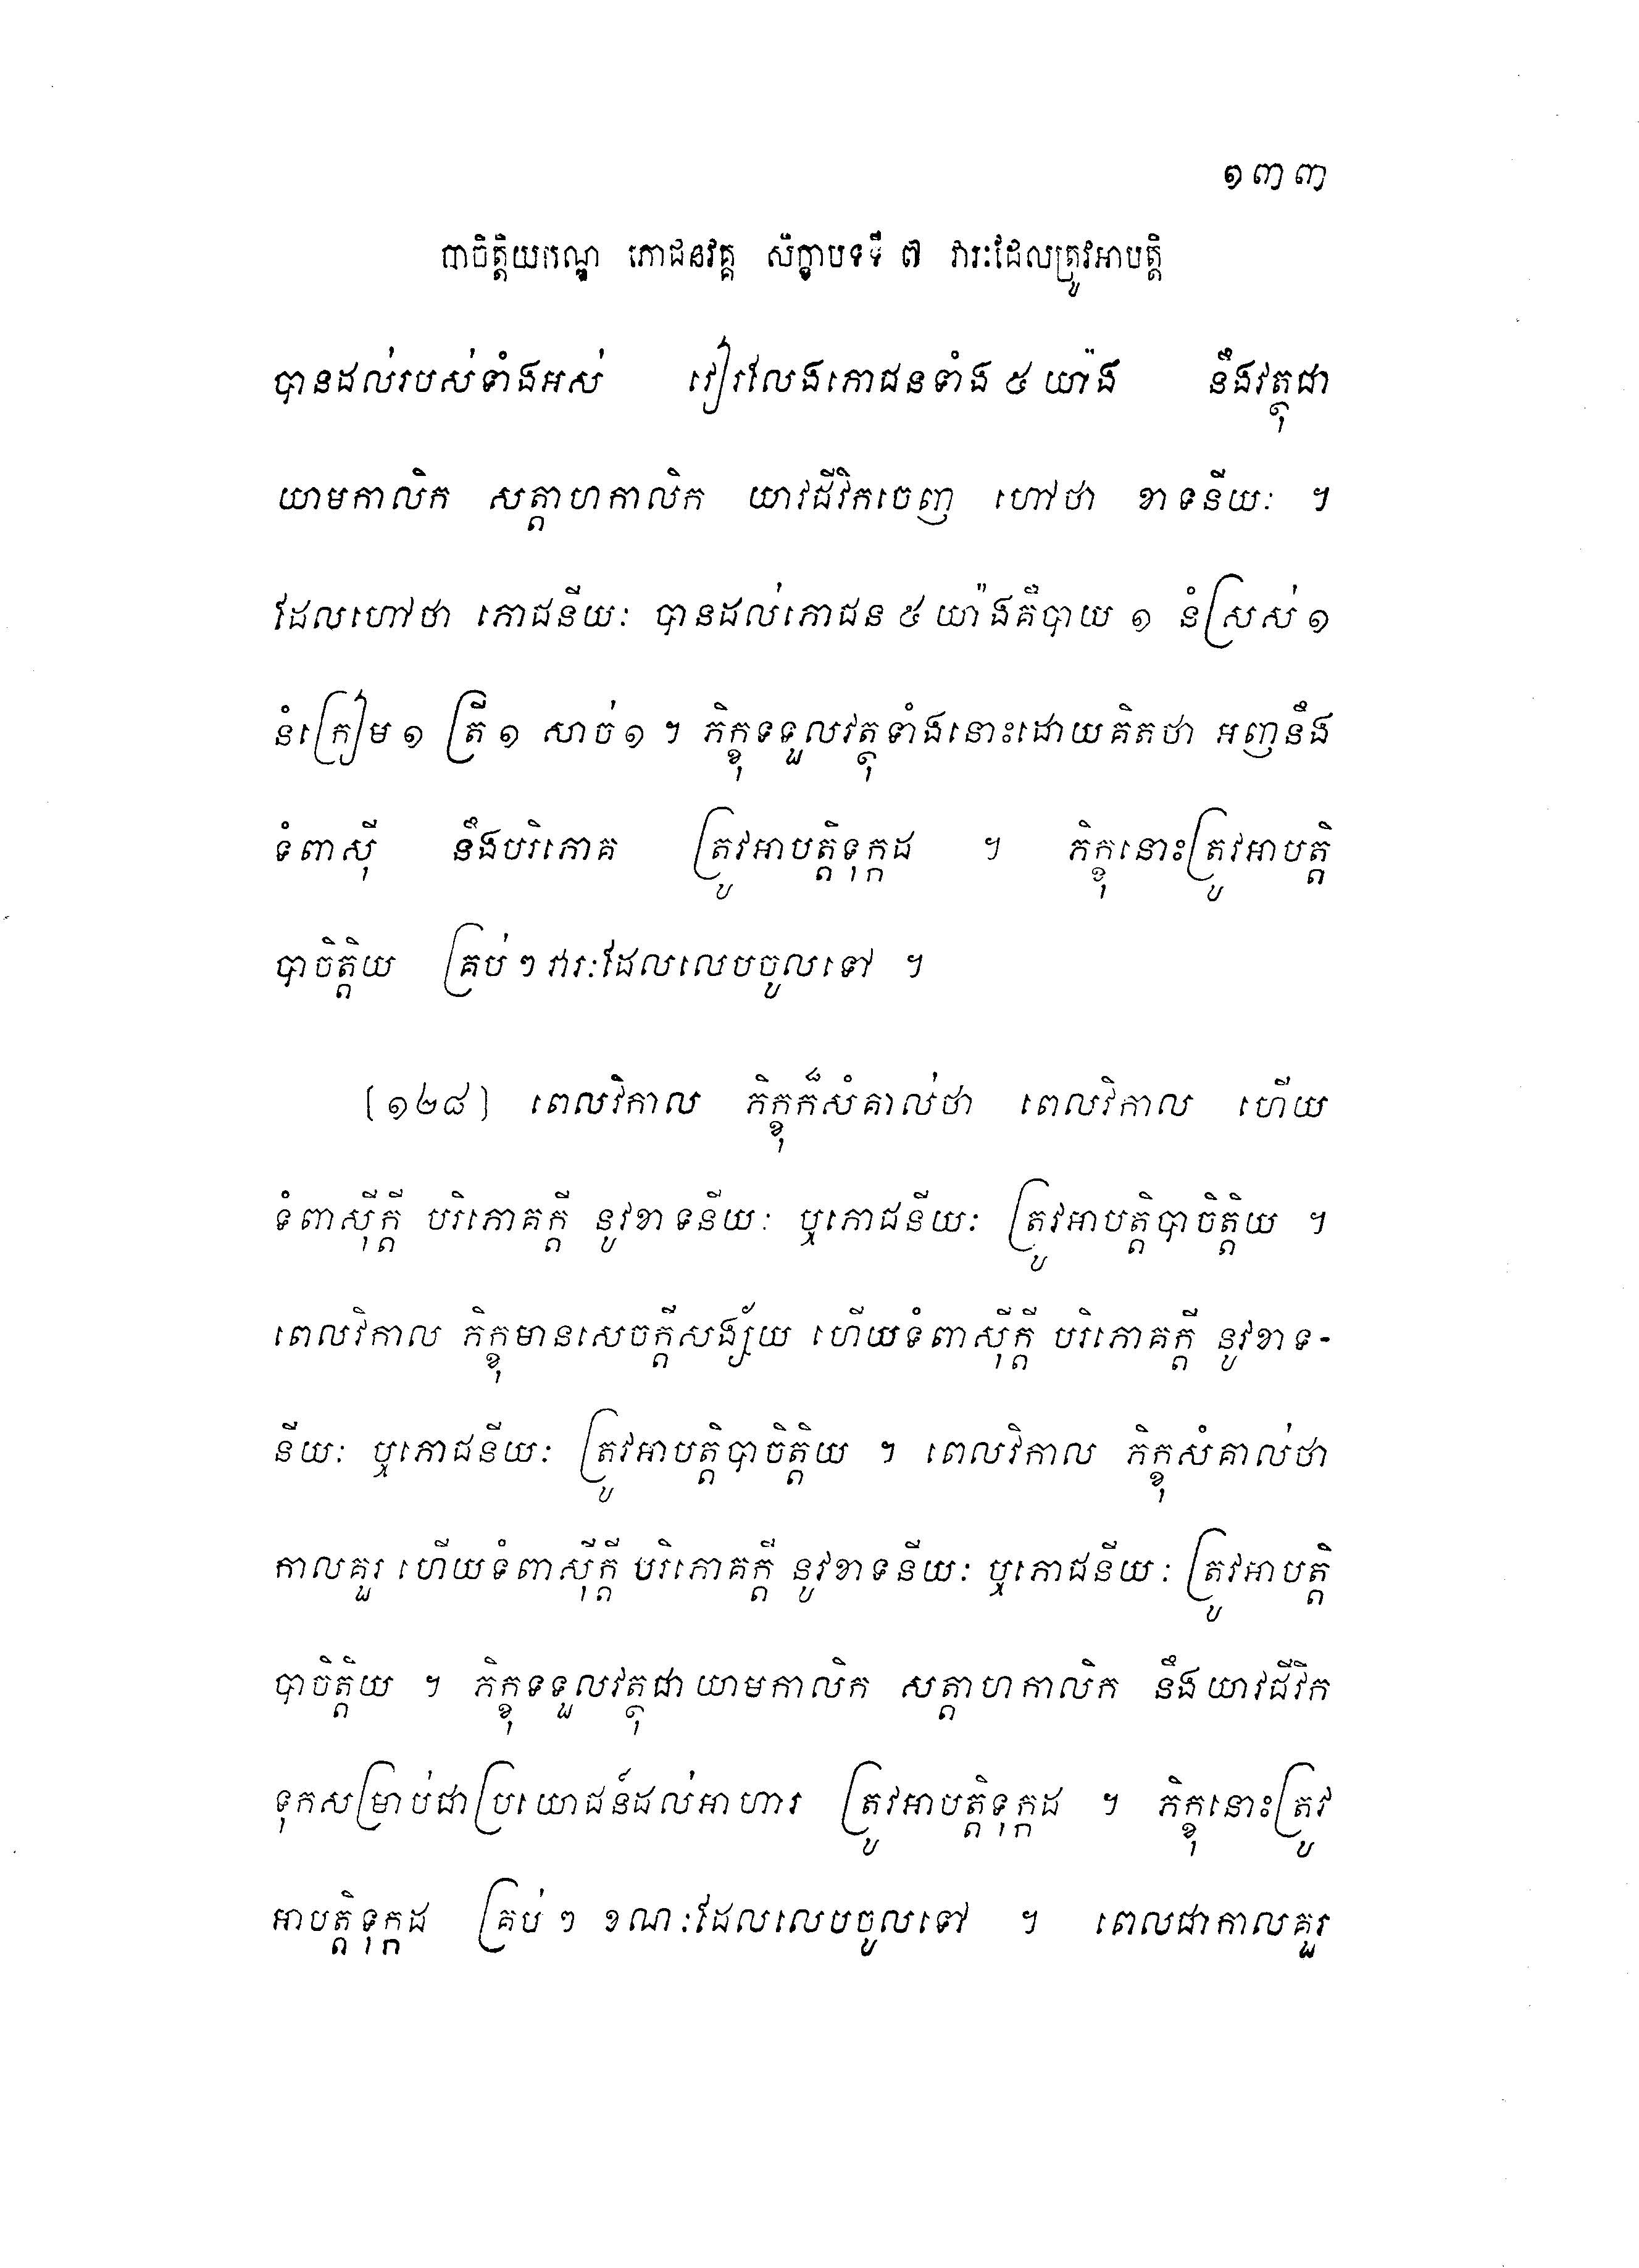 ១៣៣
បាចិត្តិយកណ្ឌ ភោជនវគ្គ សិក្ខាបទទី ៧ វារៈដែលត្រូវអាបត្តិ
បានដល់របស់ទាំងអស់ វៀរលែងភោជនទាំង ៥ យ៉ាង នឹងវត្ថុជា
យាមកាលិក សត្តាហកាលិក យាវជីវិកចេញ ហៅថា ខាទនីយៈ ។
ដែលហៅថា ភោជនីយៈ បានដល់ភោជន ៥ យ៉ាងគឺបាយ ១ នំស្រស់ ១
នំក្រៀម ១ ត្រី ១ សាច់ ១ ។ ភិក្ខុទទួលវត្ថុទាំងនោះដោយគិតថា អញនឹង
ទំពាស៊ី នឹងបរិភោគ ត្រូវអាបត្តិទុក្កដ ។ ភិក្ខុនោះត្រូវអាបត្តិ
បាចិត្តិយ គ្រប់ៗ វារៈដែលលេបចូលទៅ ។
(១២៨) ពេលវិកាល ភិក្ខុក៏សំគាល់ថា ពេលវិកាល ហើយ
ទំពាស៊ីក្តី បរិភោគក្តី នូវខាទនីយៈ ឬភោជនីយៈ ត្រូវអាបត្តិបាចិត្តិយ ។
ពេលវិកាល ភិក្ខុមានសេចក្តីសង្ស័យ ហើយទំពាស៊ីក្តី បរិភោគក្តី នូវខាទ-
នីយៈ ឬភោជនីយៈ ត្រូវអាបត្តិបាចិត្តិយ ។ ពេលវិកាល ភិក្ខុសំគាល់ថា
កាលគួរ ហើយទំពាស៊ីក្តី បរិភោគក្តី នូវខាទនីយៈ ឬភោជនីយៈ ត្រូវអាបត្តិ
បាចិត្តិយ ។ ភិក្ខុទទួលវត្ថុជាយាមកាលិក សត្តាហកាលិក នឹងយាវជីវិក
ទុកសម្រាប់ជាប្រយោជន៍ដល់អាហារ ត្រូវអាបត្តិទុក្កដ ។ ភិក្ខុនោះត្រូវ
អាបត្តិទុក្កដ គ្រប់ៗ ខណៈដែលលេបចូលទៅ ។ ពេលជាកាលគួរ